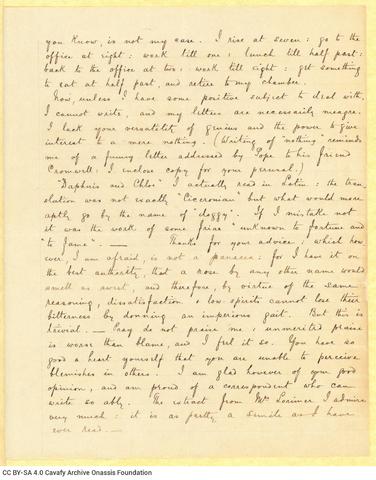 you know, is not my case. I rise at seven: go to the
office at eight: work till one: lunch till half past:
back to the office at two: work till eight: get something
to eat at half past, and retire to my chamber.
Now, unless I have some positive subject to deal with,
I cannot write, and my letters are necessarily meagre.
I lack your versatility of genius and the power to give
interest to a mere nothing. (Writing of "nothing" reminds
me of a funny letter addressed by Pope to his friend
Cromwell: I enclose copy for your perusal.)
"Daphnis and Chloe" I actually read in Latin: the tran-
slation was not exactly "Ciceronian" but what would more
aptly go by the name of "doggy". If I mistake not
it was the work of some friar "unknown to fortune and
to fame". — Thanks for your advice: which how-
ever, I am afraid, is not a panacea: for I have it on
the best authority, that a rose by any other name would
smell as sweet, and therefore, by virtue of the same
reasoning, dissatisfaction & low spirits cannot lose their
bitterness by donning an imperious gait. But this is
trivial. — Pray do not praise me: unmerited praise
is worse than blame, and I feel it so. You have so
good a heart yourself that you are unable to perceive
blemishes in others. I am glad however of your good
opinion, and am proud of a correspondent who can
write so ably. The extract from Mrs Lorimer I admire
very much: it is as pretty a simile as I have
ever read. —
CC BY-SA 4.0 Cavafy Archive Onassis Foundation